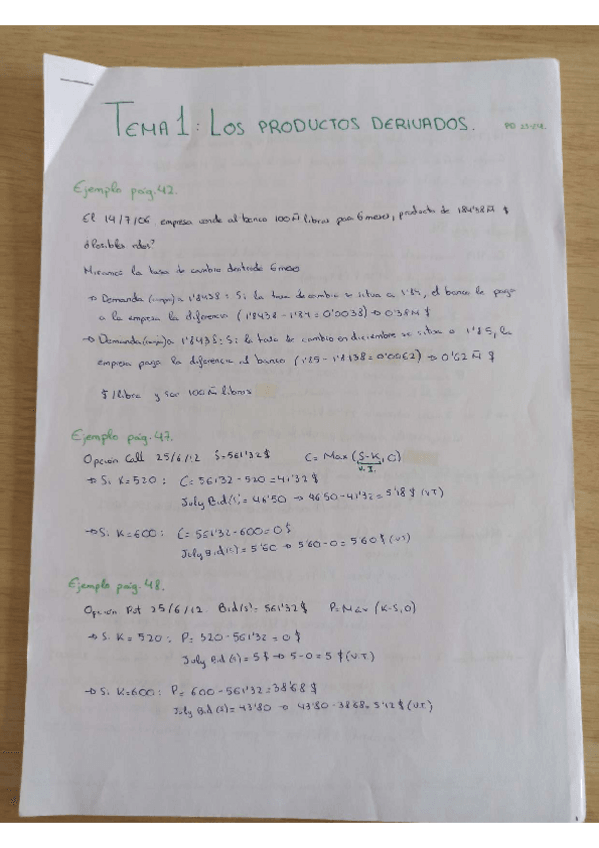 TEMA 1: LOS PRODUCTOS DERIVADOS.
Ejemplo pág. 42.
El 14/7/06 empresa vende al banco 100 M libras para 6 meses, producto de 184'38 M $
¿Posibles rdos?
Miramos la tasa de cambio dentro de 6 meses
→ Demanda (compra) a 1'8438: Si la tasa de cambio se situa a 1'84, el banco le paga
a la empresa la diferencia (1'8438 - 1'84 = 0'0038) → 0'38 M $
→ Demanda (compra) a 1'8438: Si la tasa de cambio en diciembre se situa a 1'85, la
empresa paga la diferencia al banco (1'85 - 1'8438 = 0'0062) → 0'62 M $
$/libra y son 100 M libras
Ejemplo pág. 47.
Opción Call 25/6/12 S=561'32$ C= Max (S-K, 0)
V.I.
→ Si K=520: C= 561'32 - 520 = 41'32 $
July Bid($) = 46'50 → 46'50 - 41'32 = 5'18 $ (V.T)
→ Si K=600: C= 561'32 - 600 = 0 $
July Bid($) = 5'60 → 5'60 - 0 = 5'60 $ (V.T)
Ejemplo pág. 48.
Opción Put 25/6/12. Bid($)= 561'32 $ P= Max (K-S, 0)
→ Si K = 520: P= 520 - 561'32 = 0 $
July Bid ($) = 5 $ → 5-0 = 5 $ (V.T)
→ Si K=600: P= 600 - 561'32 = 38'68 $
July Bid ($) = 43'80 → 43'80 - 38'68 = 5'12 $ (V.T.)